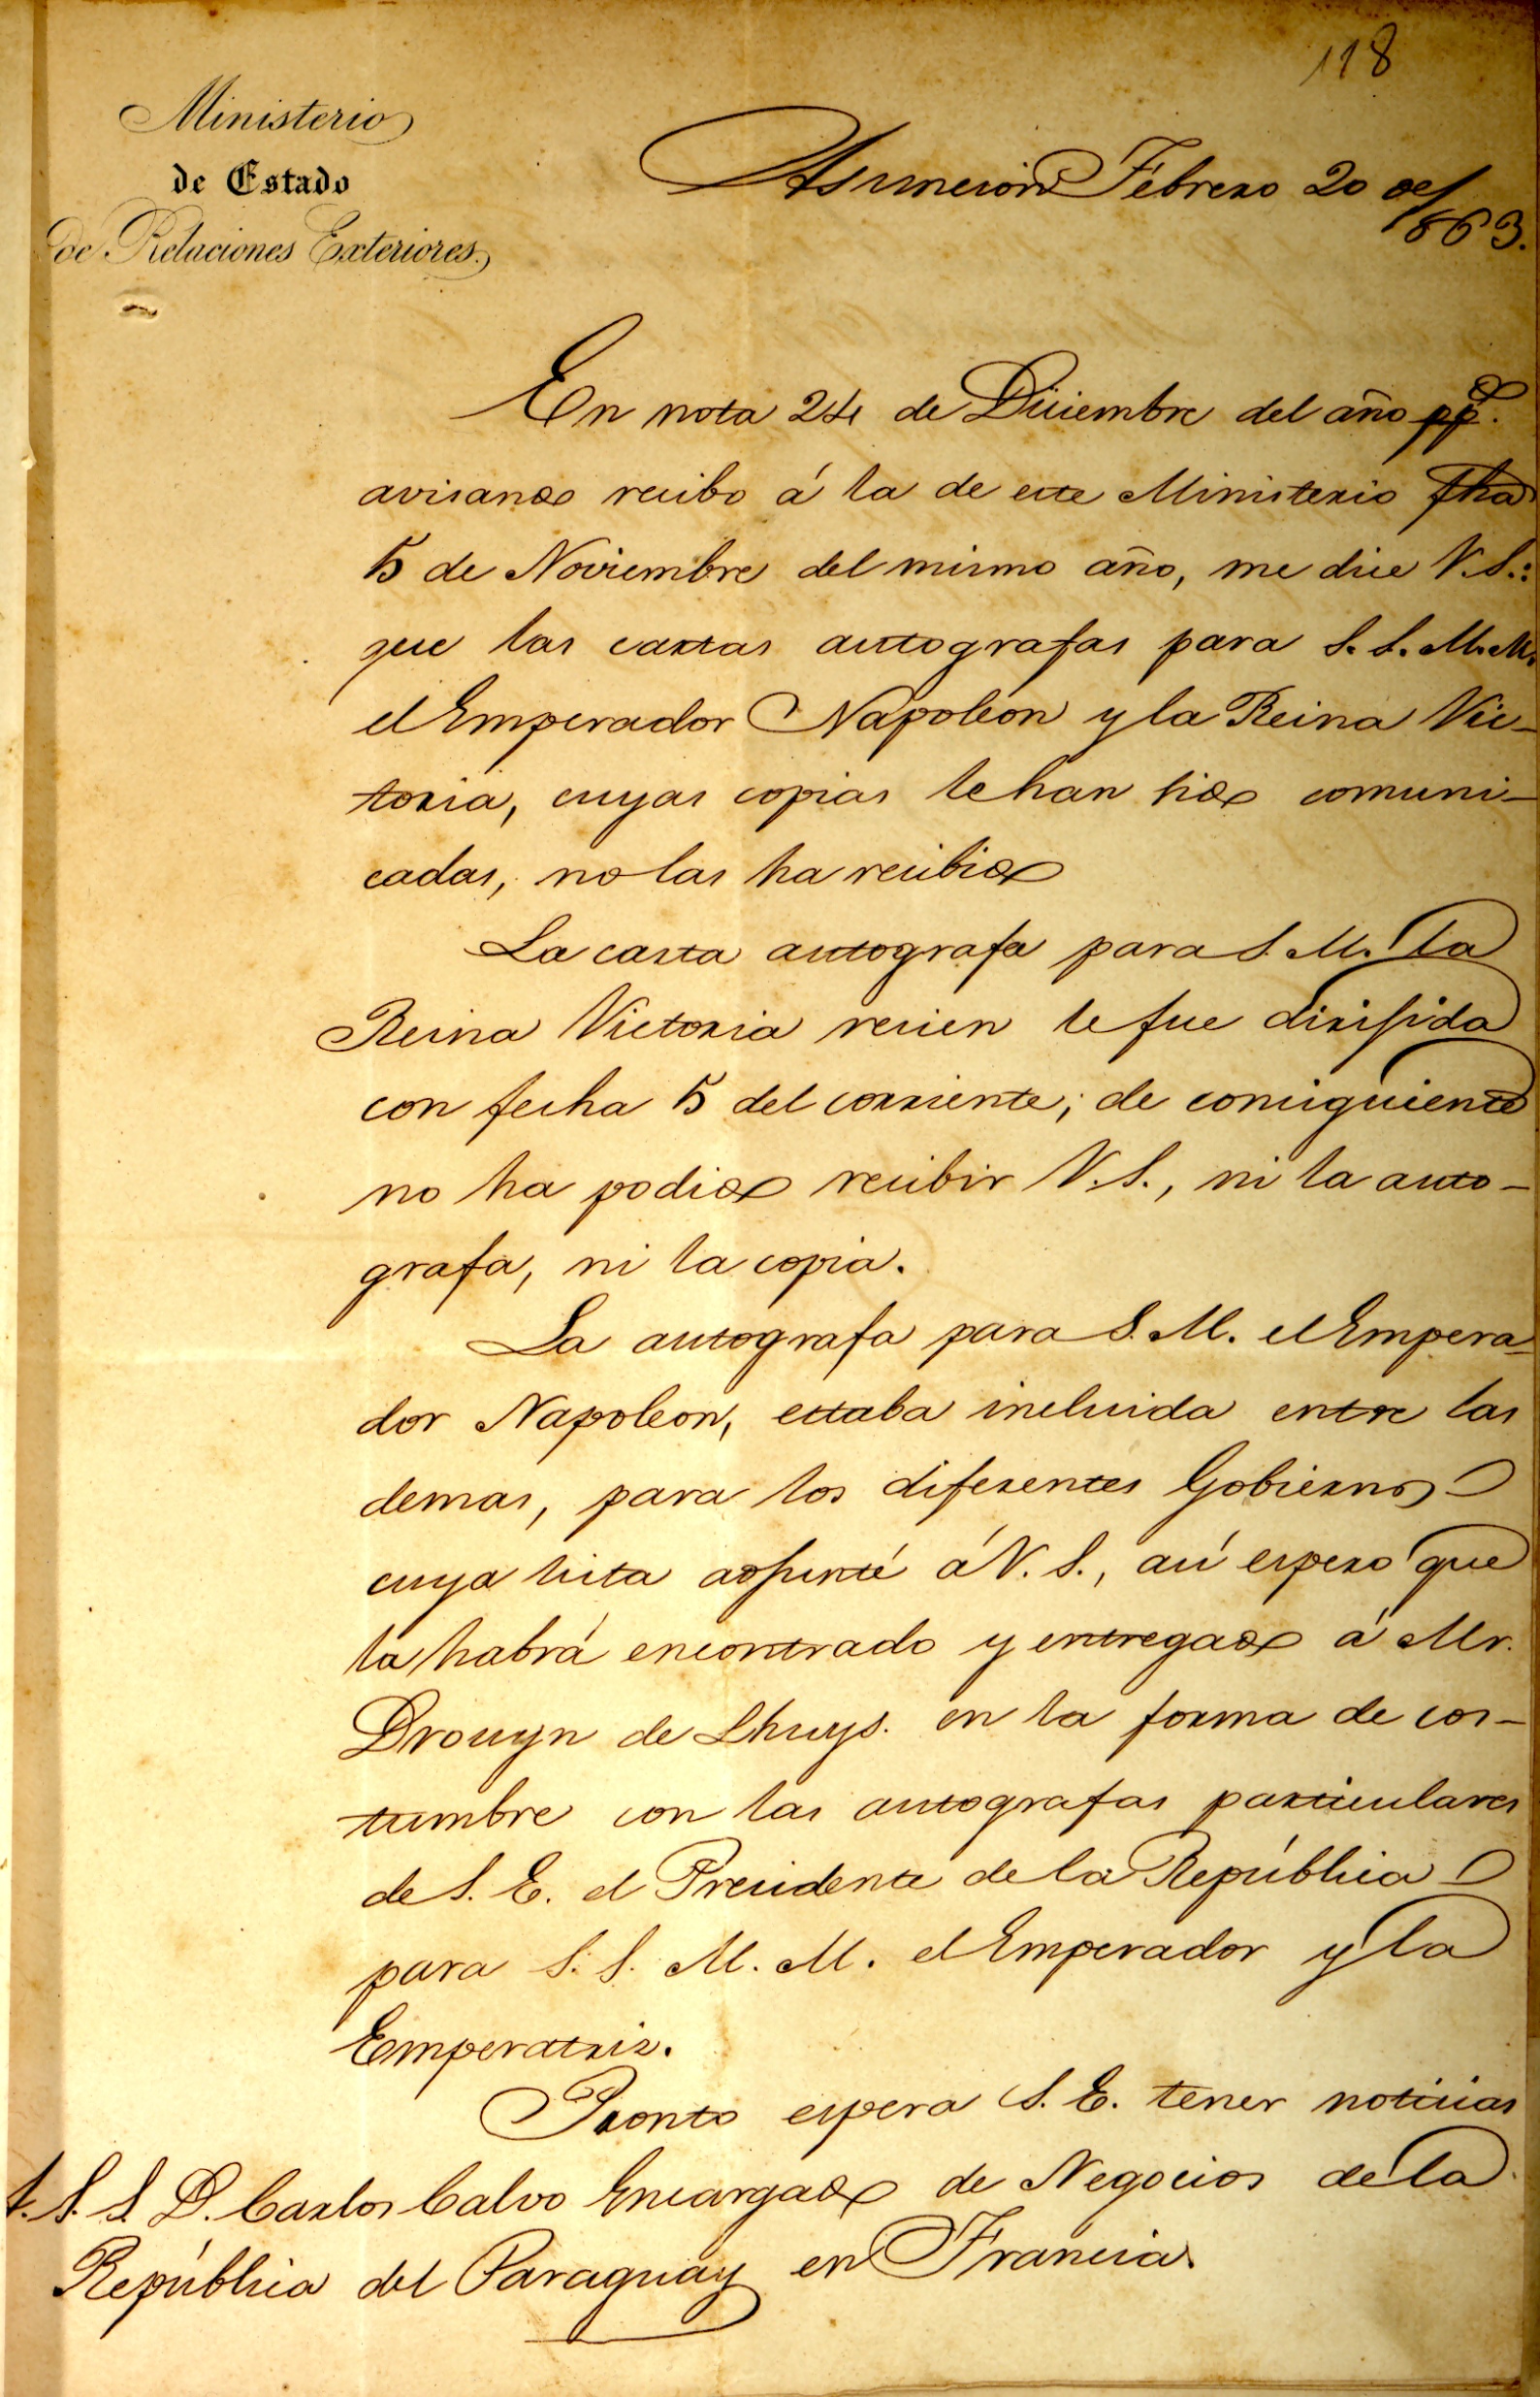 118
Ministerio
de Estado
de Relaciones Exteriores.
Asuncion Febrero 20 de
1863.
En nota 24 de Diciembre del año pp.º
avisando recibo á la de este Ministerio fha
5 de Noviembre del mismo año, me dice V.S.:
que las cartas autografas para S.S.M.M.
el Emperador Napoleon y la Reina Vic-
toria, cuyas copias le han sido comuni-
cadas, no las ha recibido
La carta autografa para S.M. la
Reina Victoria recien le fue dirijida
con fecha 5 del corriente; de consiguiente
no ha podido recibir V.S., ni la auto-
grafa, ni la copia.
La autografa para S.M. el Empera-
dor Napoleon, estaba incluida entre las
demas, para los diferentes Gobiernos
cuya lista adjunté á V.S., así espero que
la habrá encontrado y entregado á Mr.
Drouyn de Lhuys. en la forma de cos-
tumbre con las autografas particulares
de S.E. el Presidente de la República
para S.S.M.M. el Emperador y la
Emperatriz.
Pronto espera S.E. tener noticias
S.S. D. Carlos Calvo Encargado de Negocios de la
República del Paraguay en Francia.